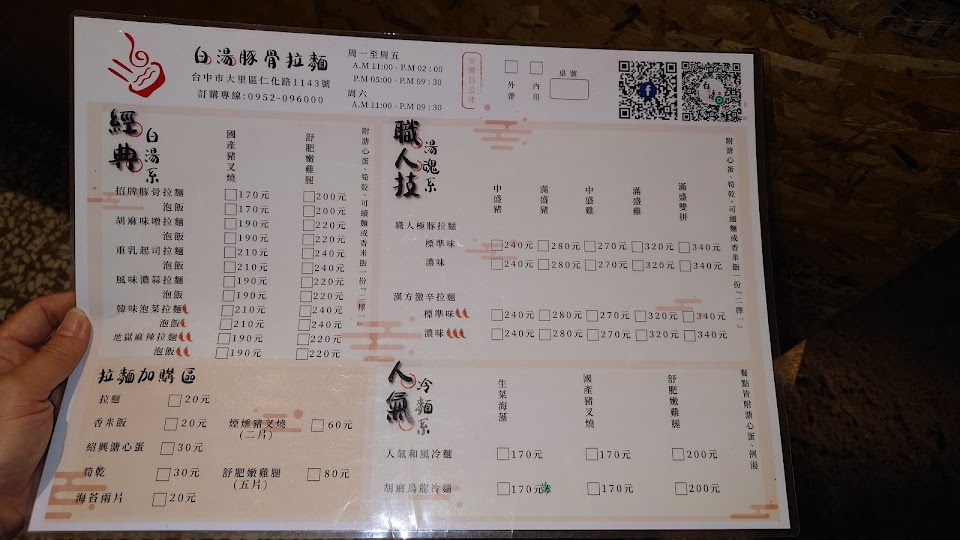 白湯豚骨拉麵
台中市大里區仁化路1143號
訂購專線:0952-096000
周一至周五
A.M 11:00 - P.M 02:00
P.M 05:00 - P.M 09:30
周六
A.M 11:00 - P.M 09:30
外帶 內用
桌號
經典 白湯系
國產豬叉燒 舒肥嫩雞腿
附溏心蛋、筍乾,可續麵或香米飯一份『二擇一』
招牌豚骨拉麵 170元 200元
泡飯 170元 200元
胡麻味噌拉麵 190元 220元
泡飯 190元 220元
重乳起司拉麵 210元 240元
泡飯 210元 240元
風味濃蒜拉麵 190元 220元
泡飯 190元 220元
韓味泡菜拉麵 210元 240元
泡飯 210元 240元
地獄麻辣拉麵 190元 220元
泡飯 190元 220元
職人技 湯魂系
中盛豬 滿盛豬 中盛雞 滿盛雞 滿盛雙拼
附溏心蛋、筍乾,可續麵或香米飯一份『二擇一』
職人極豚拉麵
標準味 240元 280元 270元 320元 340元
濃味 240元 280元 270元 320元 340元
漢方激辛拉麵
標準味 240元 280元 270元 320元 340元
濃味 240元 280元 270元 320元 340元
拉麵加購區
拉麵 20元
香米飯 20元 煙燻豬叉燒 60元
(二片)
紹興溏心蛋 30元
筍乾 30元 舒肥嫩雞腿 80元
(五片)
海苔兩片 20元
人氣 冷麵系
生菜海藻 國產豬叉燒 舒肥嫩雞腿
餐點皆附溏心蛋、例湯
人氣和風冷麵 170元 170元 200元
胡麻烏龍冷麵 170元 170元 200元